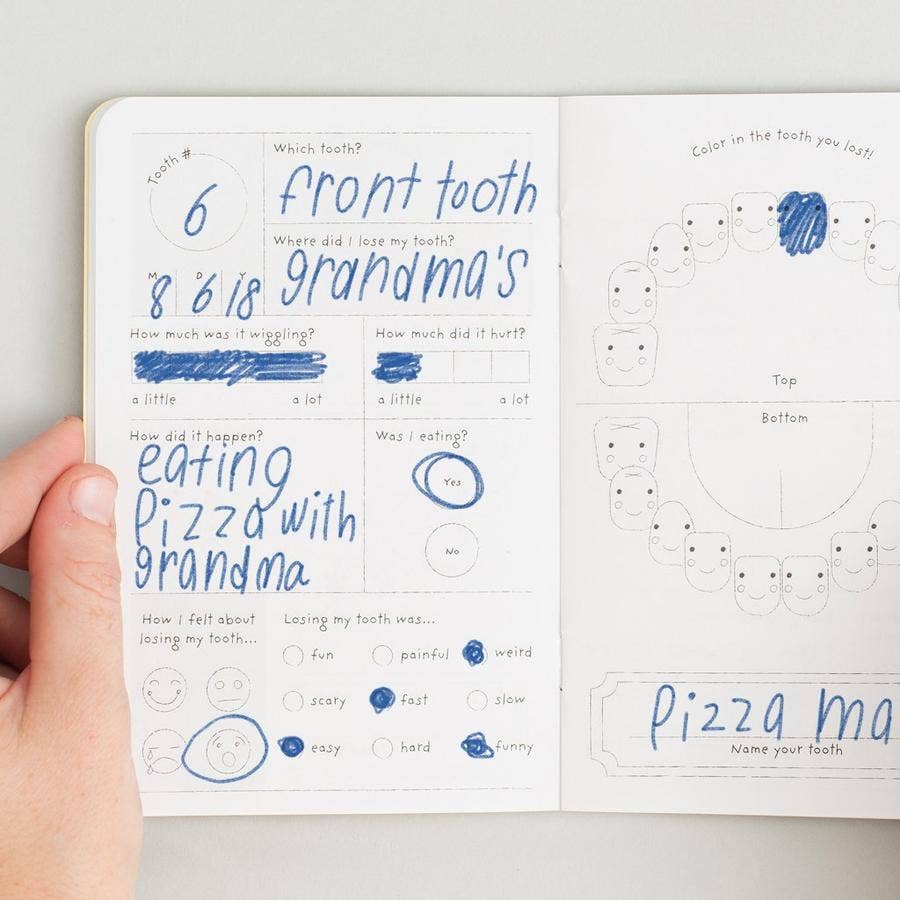 Tooth #
6
M D Y
8 6 18
Which tooth?
front tooth
Where did I lose my tooth?
grandma's
How much was it wiggling?
a little a lot
How much did it hurt?
a little a lot
How did it happen?
eating
pizza with
grandma
Was I eating?
Yes
No
How I felt about
losing my tooth...
Losing my tooth was...
fun painful weird
scary fast slow
easy hard funny
Color in the tooth you lost!
Top
Bottom
Pizza Ma
Name your tooth